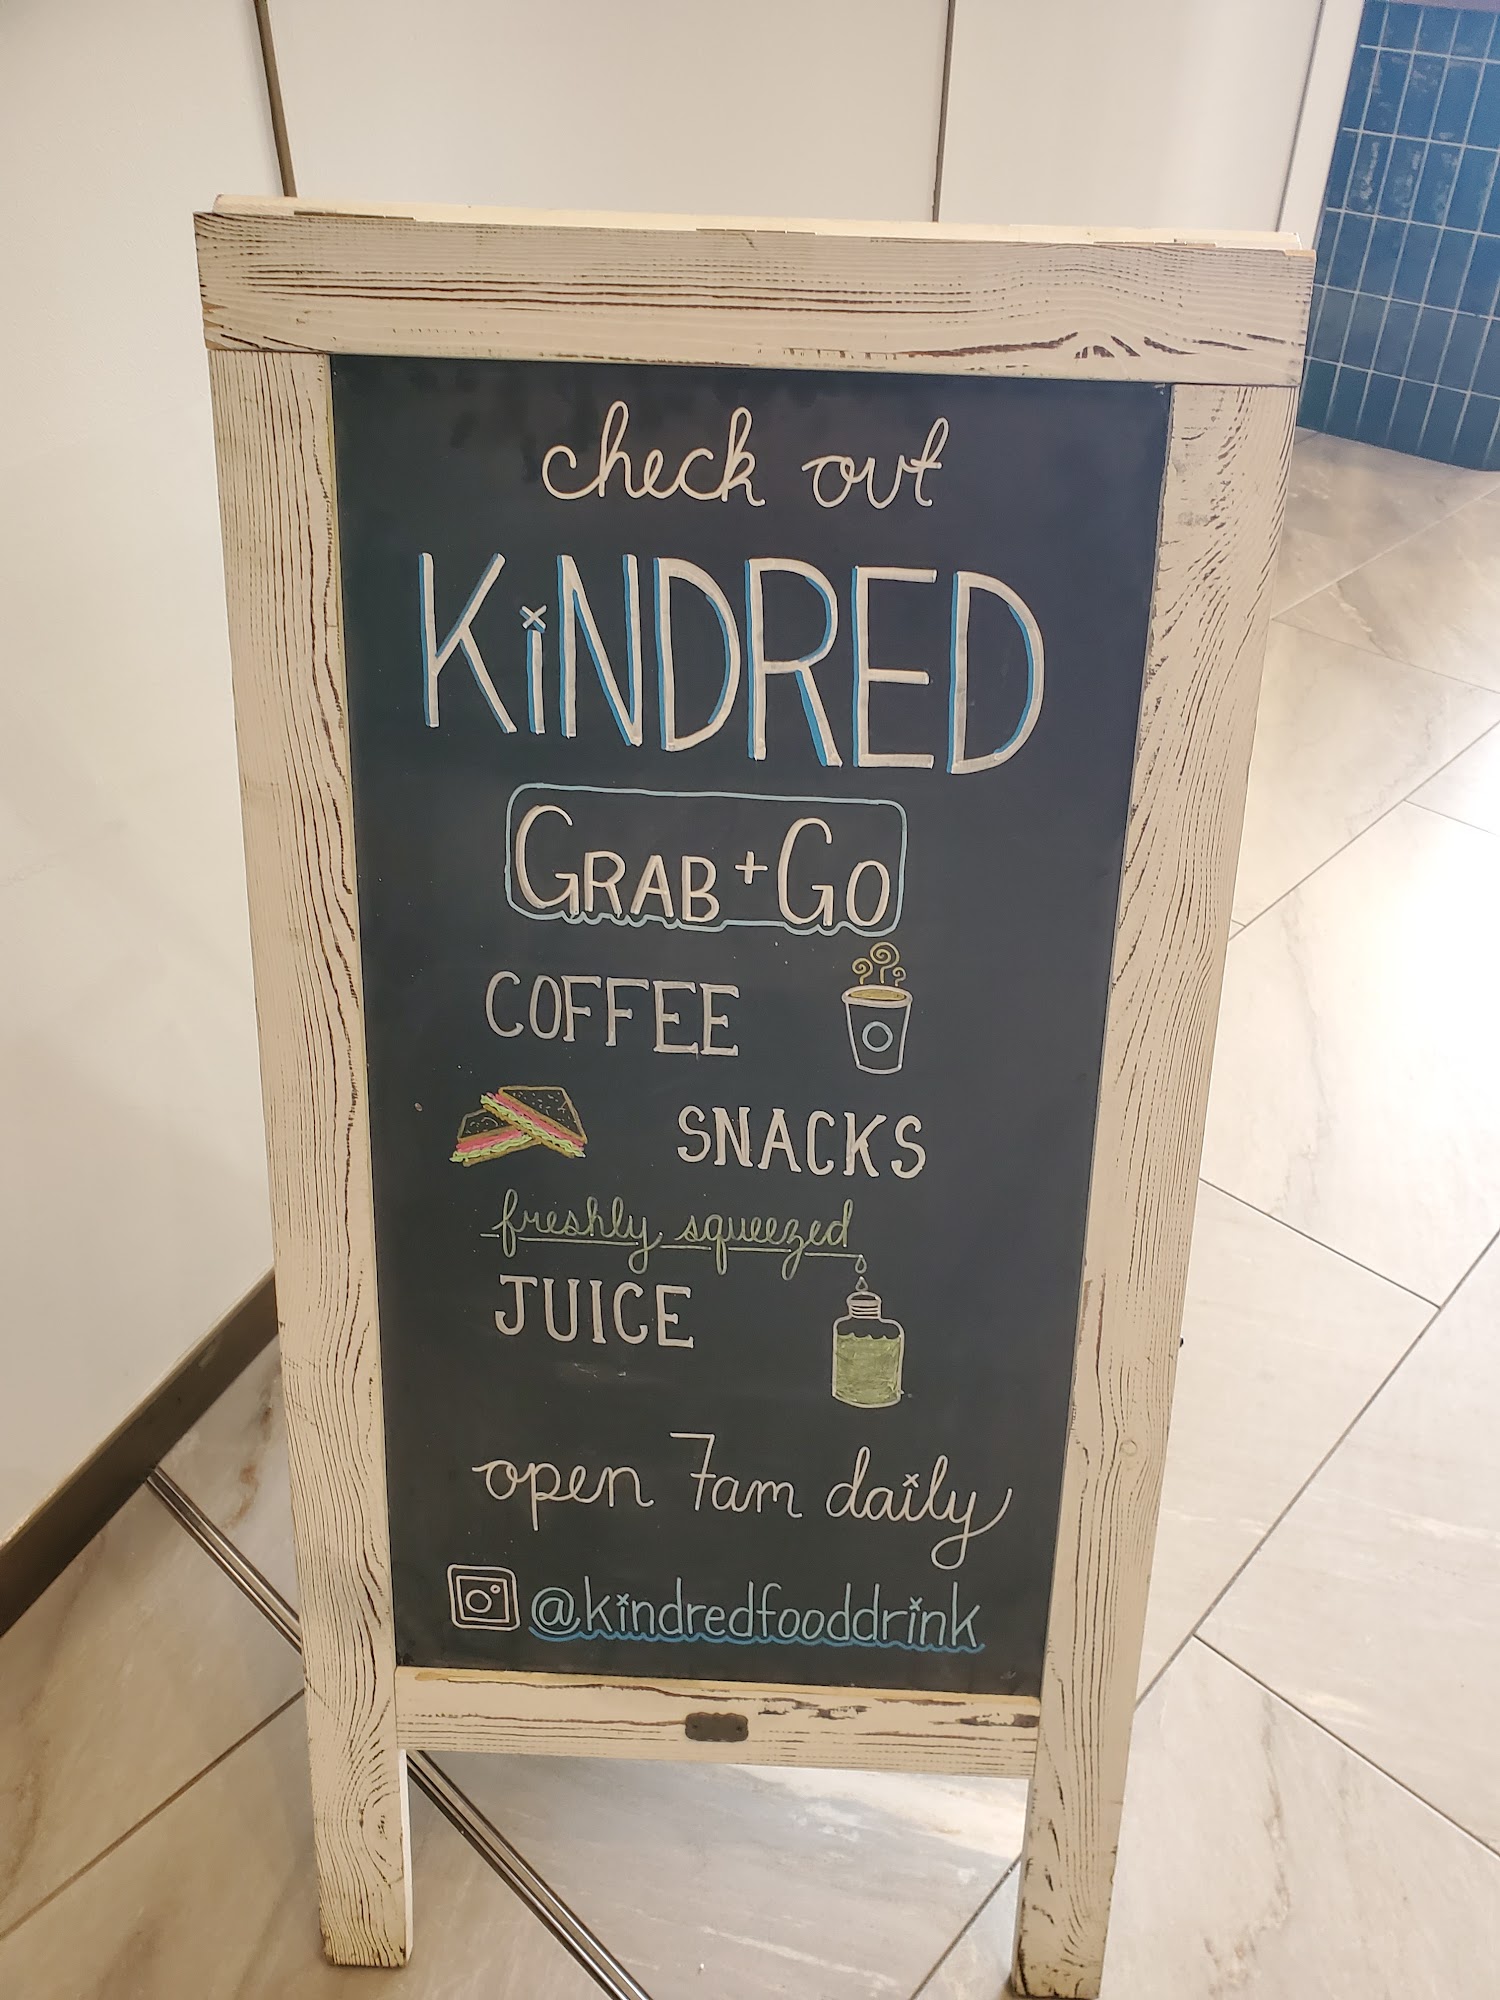 check out
KiNDRED
GRAB + GO
COFFEE
SNACKS
freshly squeezed
JUICE
open 7am daily
@kindredfooddrink